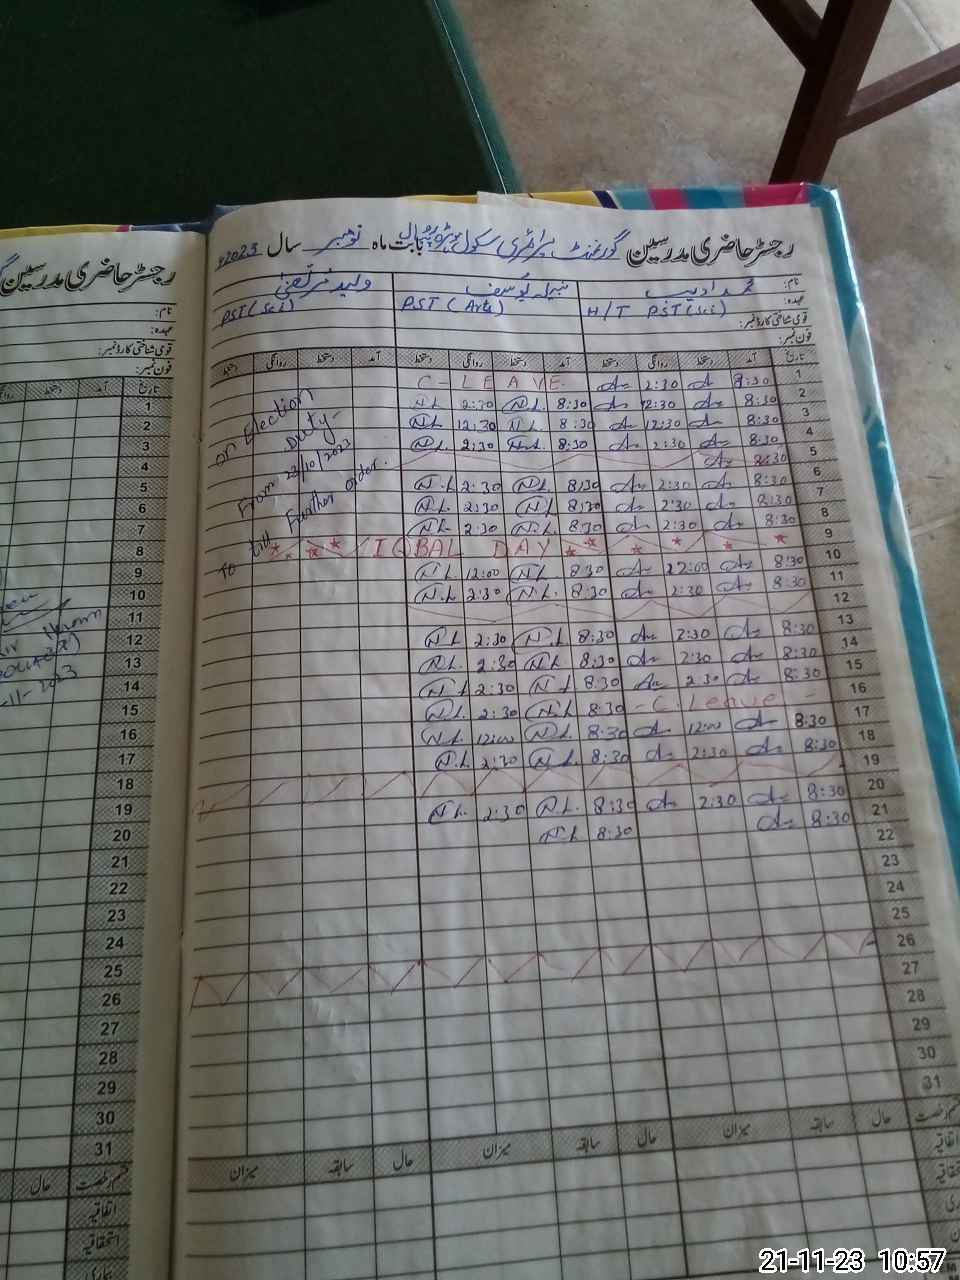 رجسٹر حاضری مدرسین گورنمنٹ پرائمری سکول بابت ماہ نومبر سال 2023
نام: محمد ادیب نبیلہ یوسف ولید مرتضیٰ
عہدہ: H/T PST (Sci) PST (Arts) PST (Sci)
قومی شناختی کارڈ نمبر:
فون نمبر:
تاریخ آمد دستخط روانگی دستخط آمد دستخط روانگی دستخط آمد دستخط روانگی دستخط
1 8:30 2:30 C-LEAVE
2 8:30 2:30 8:30 N.L. 2:30 N.L.
3 8:30 12:30 8:30 N.L. 12:30 N.L.
4 8:30 2:30 8:30 N.L. 2:30 N.L.
5 8:30
6 8:30 2:30 8:30 N.L. 2:30 N.L.
7 8:30 2:30 8:30 N.L. 2:30 N.L.
8 8:30 2:30 8:30 N.L. 2:30 N.L.
9 IQBAL DAY
10 8:30 12:00 8:30 N.L. 12:00 N.L.
11 8:30 2:30 8:30 N.L. 2:30 N.L.
12
13 8:30 2:30 8:30 N.L. 2:30 N.L.
14 8:30 2:30 8:30 N.L. 2:30 N.L.
15 8:30 2:30 8:30 N.L. 2:30 N.L.
16 - C. Leave - 8:30 N.L. 2:30 N.L.
17 8:30 12:00 8:30 N.L. 12:00 N.L.
18 8:30 2:30 8:30 N.L. 2:30 N.L.
19
20 8:30 2:30 8:30 N.L. 2:30 N.L.
21 8:30 8:30 N.L.
22
23
24
25
26
27
28
29
30
31
on Election
Duty-
From 23/10/2023
To till Further order.
حال سابقہ میزان حال سابقہ میزان حال سابقہ میزان
رجسٹر حاضری مدرسین
نام:
عہدہ:
قومی شناختی کارڈ نمبر:
فون نمبر:
تاریخ آمد دستخط روانگی
1
2
3
4
5
6
7
8
9
10
11
12
13
14
15
16
17
18
19
20
21
22
23
24
25
26
27
28
29
30
31
قسم رخصت حال
اتفاقیہ
استحقاقیہ
بیماری
21-11-23 10:57